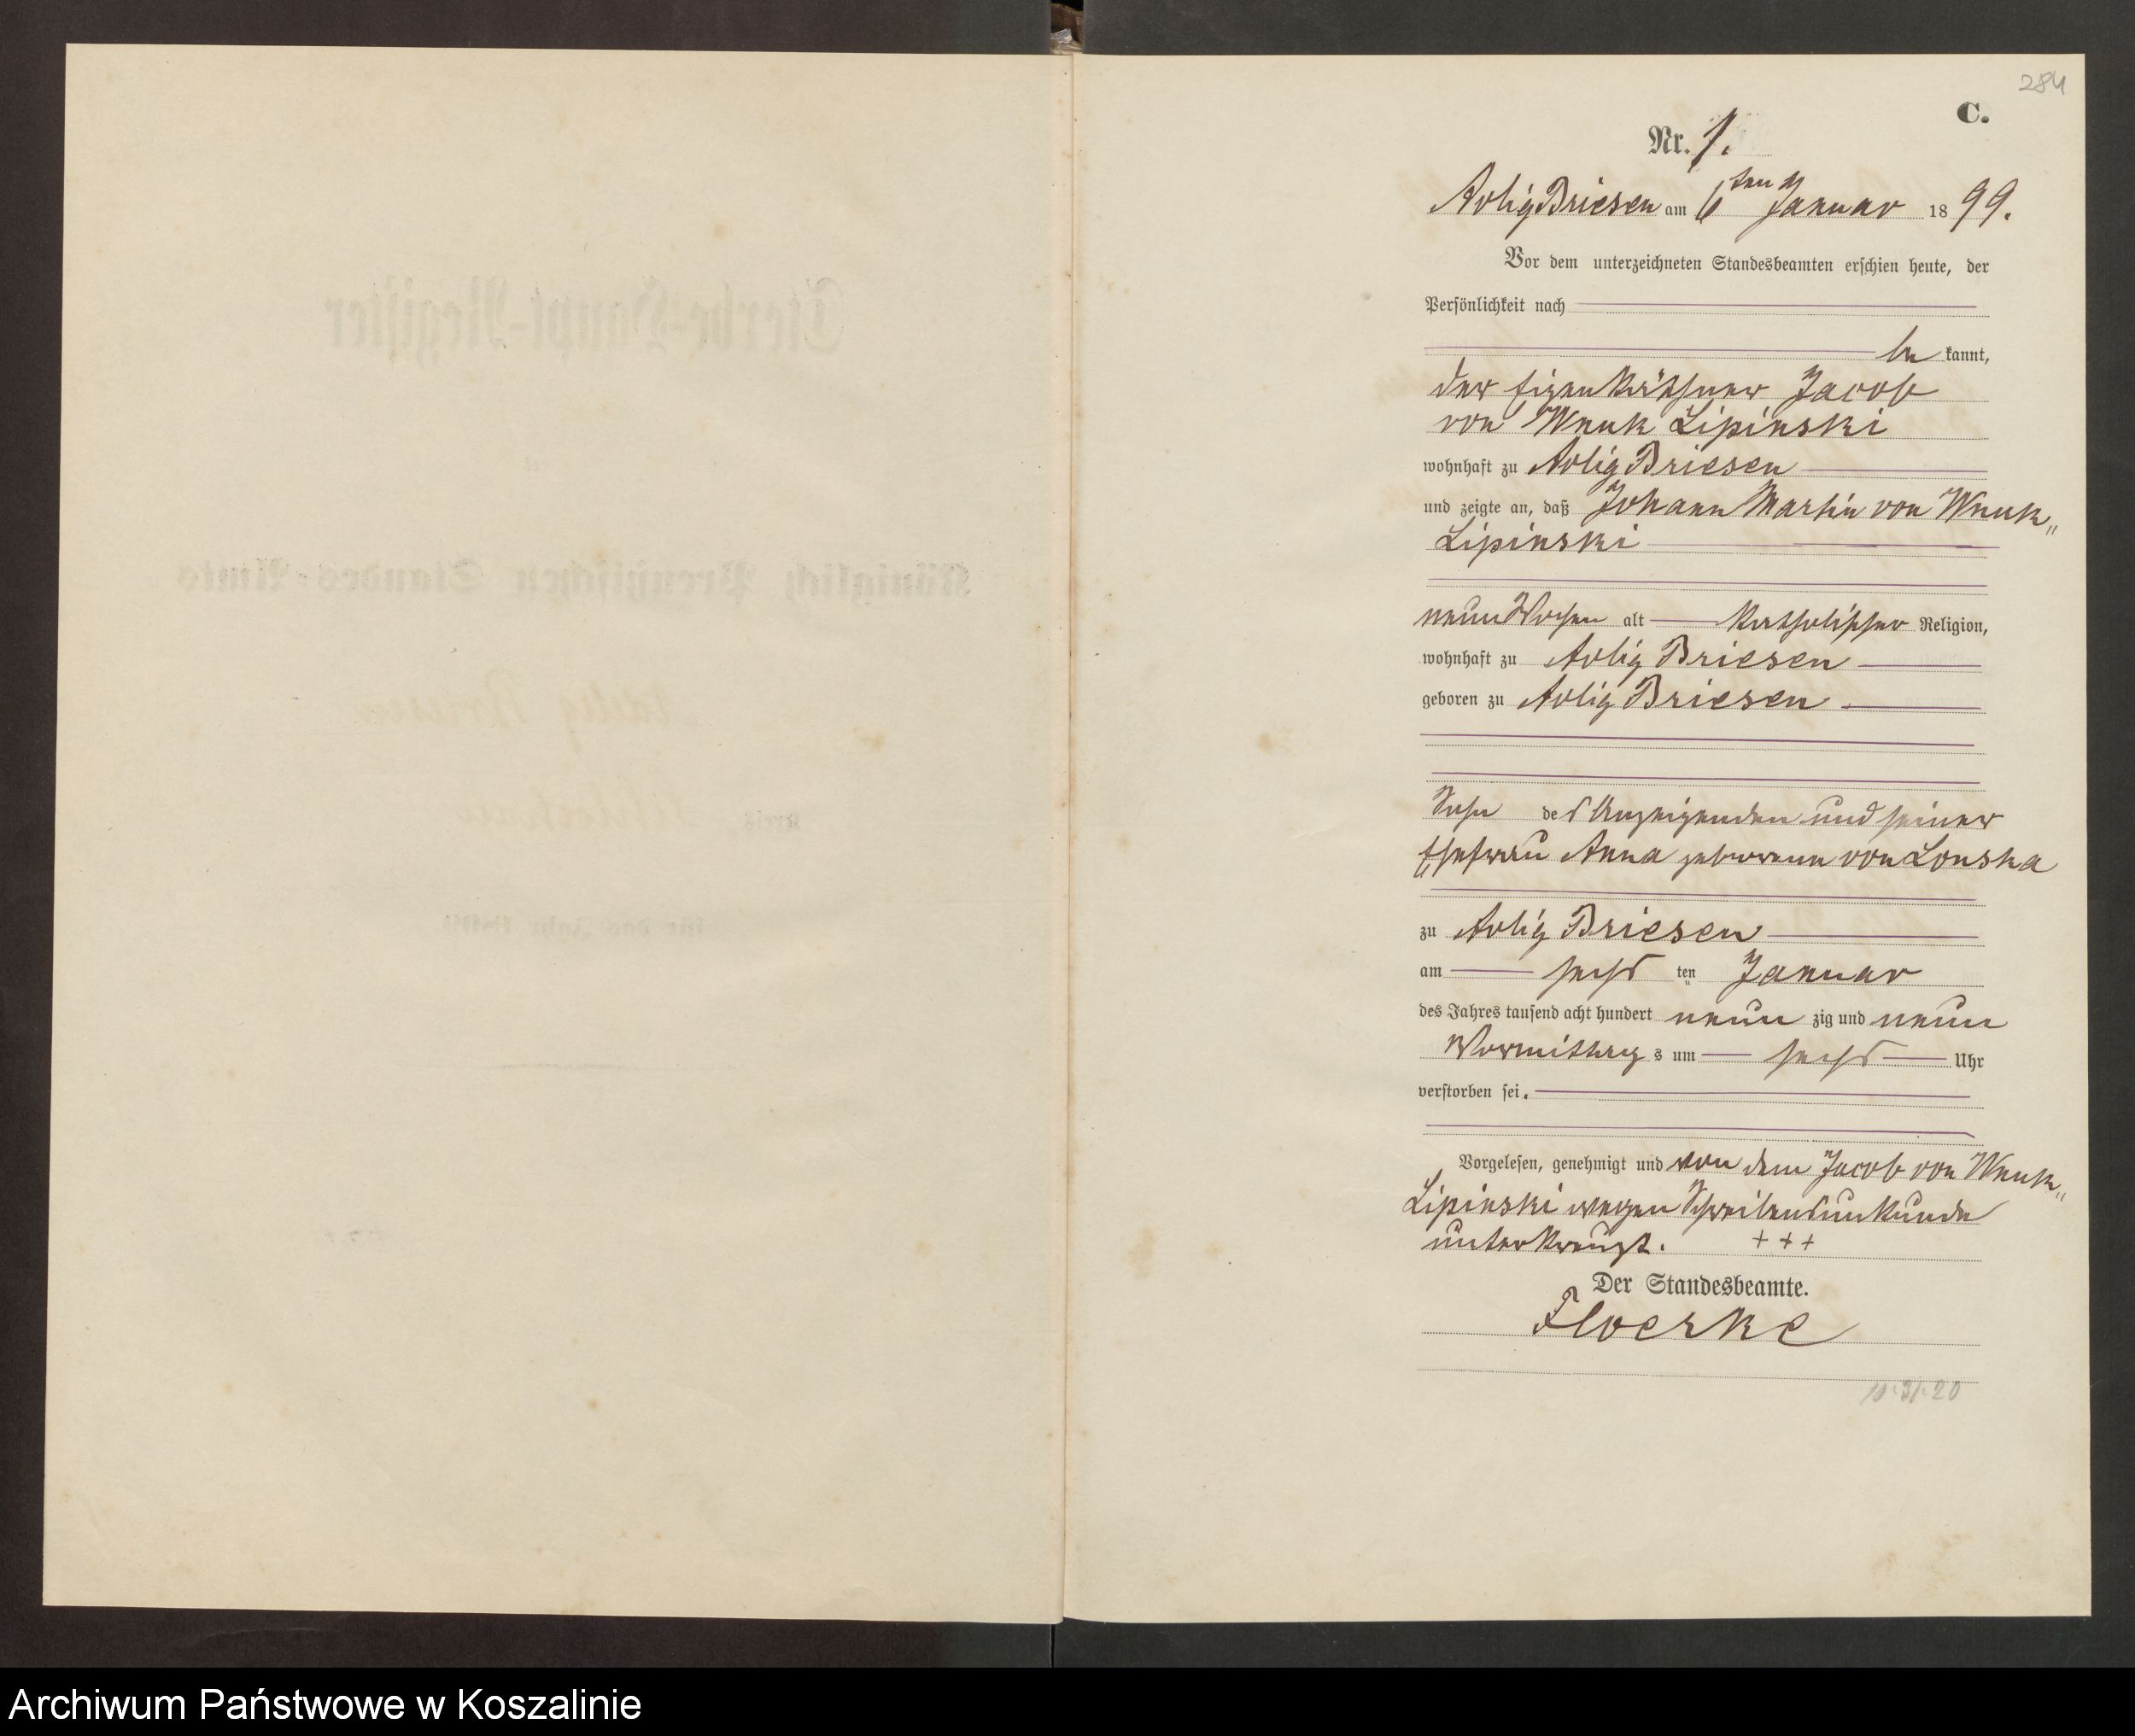 284
C.
Nr. 1.
Adlig Briesen am 6ten Januar 1899.
Vor dem unterzeichneten Standesbeamten erschien heute, der
Persönlichkeit nach
be kannt,
der Eigenkäthner Jacob
von Wnuk Lipinski
wohnhaft zu Adlig Briesen
und zeigte an, daß Johann Martin von Wnuk„
Lipinski
neun Wochen alt katholischer Religion,
wohnhaft zu Adlig Briesen
geboren zu Adlig Briesen
Sohn des Anzeigenden und seiner
Ehefrau Anna geborenen von Lonska
zu Adlig Briesen
am sechs ten Januar
des Jahres tausend acht hundert neun zig und neun
Vormittag s um sechs Uhr
verstorben sei.
Vorgelesen, genehmigt und von dem Jacob von Wnuk„
Lipinski wegen Schreibensunkunde
unterkreuzt. + + +
Der Standesbeamte.
Floerke
Sterbe-Haupt-Register
Königlich Preußischen Standes-Amts
Adlig Briesen
Kreis Schlochau
für das Jahr 1899
Archiwum Państwowe w Koszalinie